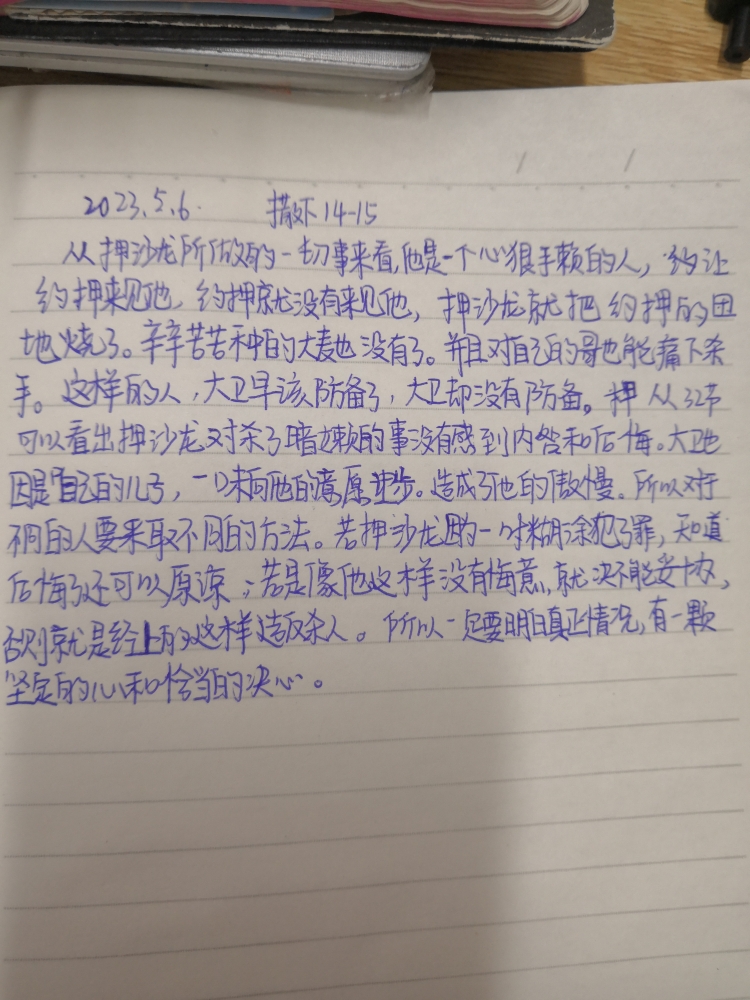 2023.5.6. 撒下14-15
从押沙龙所做的一切事来看,他是一个心狠手赖的人,约让
约押来见他,约押就没有来见他,押沙龙就把约押的田
地烧了。辛辛苦苦种的大麦也没有了。并且对自己的哥也能痛下杀
手。这样的人,大卫早该防备了,大卫却没有防备。押从32节
可以看出押沙龙对杀了暗嫩的事没有感到内咎和后悔。大卫也
因是自己的儿子,一味向他的意愿进步。造成了他的傲慢。所以对于
不同的人要采取不同的方法。若押沙龙一时糊涂犯了罪,知道
后悔了还可以原谅;若是像他这样没有悔意,就决不能妥协,
否则就是经上的这样造反杀人。所以一定要明白真正情况,有一颗
坚定的心和恰当的决心。